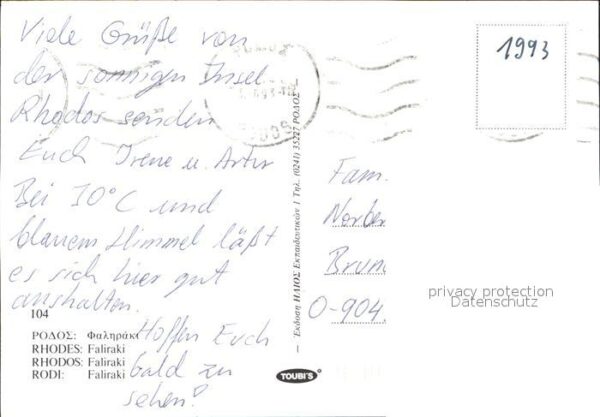 Viele Grüße von
der sonnigen Insel
Rhodos senden
Euch Irene u. Artur
Bei 30°C und
blauem Himmel läßt
es sich hier gut
aushalten.
Hoffen Euch
bald zu
sehen!
104
ΡΟΔΟΣ: Φαληράκι
RHODES: Faliraki
RHODOS: Faliraki
RODI: Faliraki
Έκδοση ΗΛΙΟΣ Εκπαιδευτικών 1 Τηλ. (0241) 35227 ΡΟΔΟΣ
TOUBI'S
1993
Fam.
Norber
Brum
O-904
privacy protection
Datenschutz